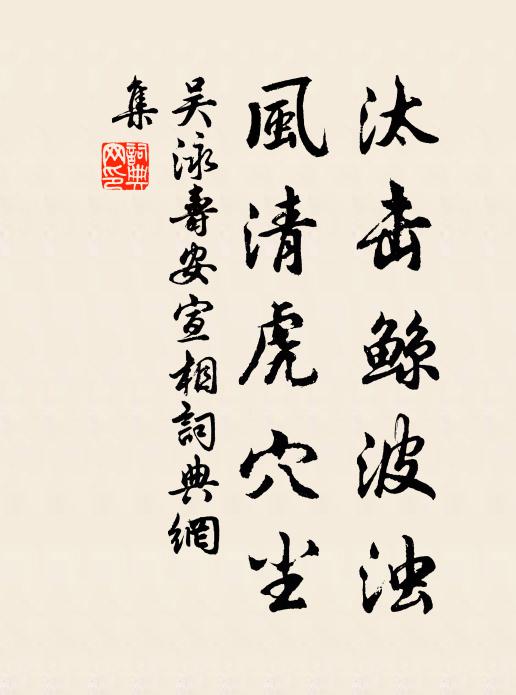 汰击鲸波浊
風清虎穴尘
吴泳寿安宣相詞典網
集
詞典網印